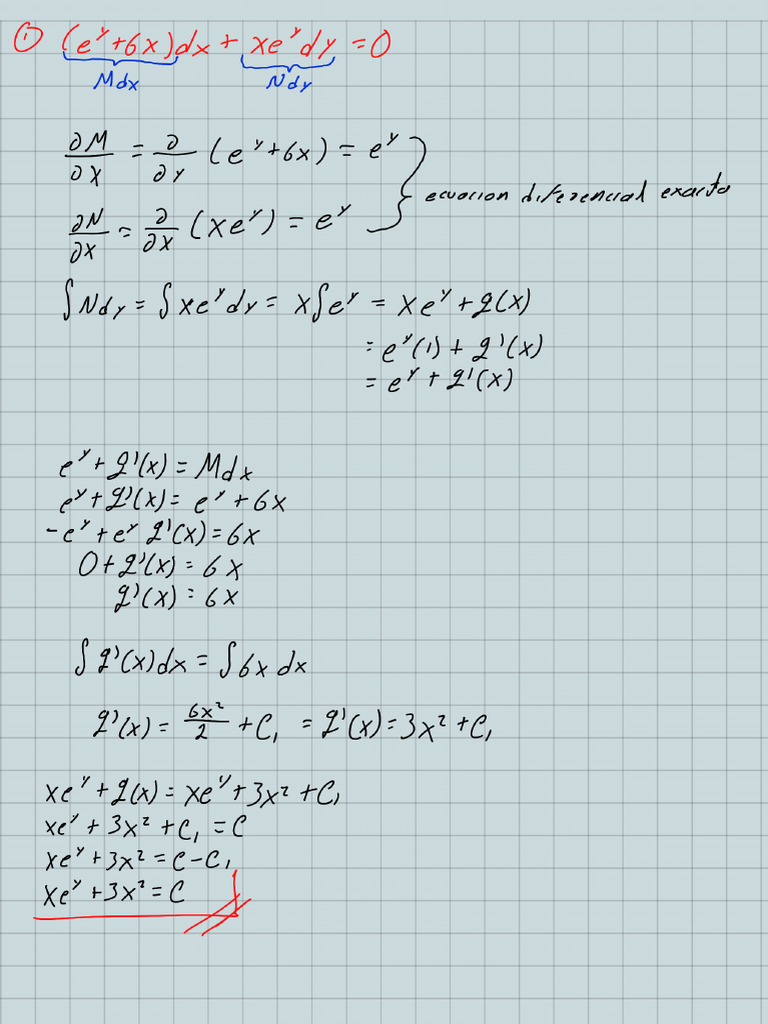 ① (e^y+6x)dx + xe^y dy = 0
Mdx Ndy
∂M/∂x = ∂/∂y (e^y+6x) = e^y
ecuacion diferencial exacta
∂N/∂x = ∂/∂x (xe^y) = e^y
∫Ndy = ∫xe^y dy = x∫e^y = xe^y + g(x)
= e^y(1) + g'(x)
= e^y + g'(x)
e^y + g'(x) = Mdx
e^y + g'(x) = e^y + 6x
-e^y + e^y g'(x) = 6x
0 + g'(x) = 6x
g'(x) = 6x
∫g'(x)dx = ∫6x dx
g'(x) = 6x²/2 + C₁ = g'(x) = 3x² + C₁
xe^y + g(x) = xe^y + 3x² + C₁
xe^y + 3x² + C₁ = C
xe^y + 3x² = C - C₁
xe^y + 3x² = C